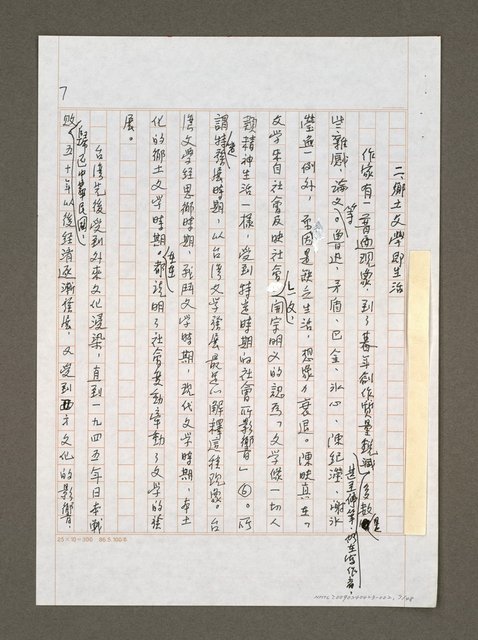 7
二、鄉土文學即生活
作家有一普遍現象,到了暮年創作質量銳減,多數是
些雜感、論文等。魯迅、矛盾、巴金、冰心、陳紀瀅、謝冰
瑩無一例外,原因是缺乏生活,想像力衰退。陳映真在「
文學來自社會反映社會」一文,開宗明义的認為「文學像一切人
類精神生活一樣,受到特定時期的社會所影響」⑥。所
謂特定發展時期,以台灣文學發展最足以解釋這種現象。台
灣文學經思鄉時期,戰鬥文學時期,現代文學時期,本土
化的鄉土文學時期。在在都說明了社會變動牽動了文學的發
展。
台灣先後受到外來文化浸染,直到一九四五年日本戰
敗歸返中華民國,五十年以後經濟逐漸發展,又受到西方文化的影響,
甚至停筆,仍在寫作者,
25×10=300 86.5.100本
NMTL20090240423-002, 7/48